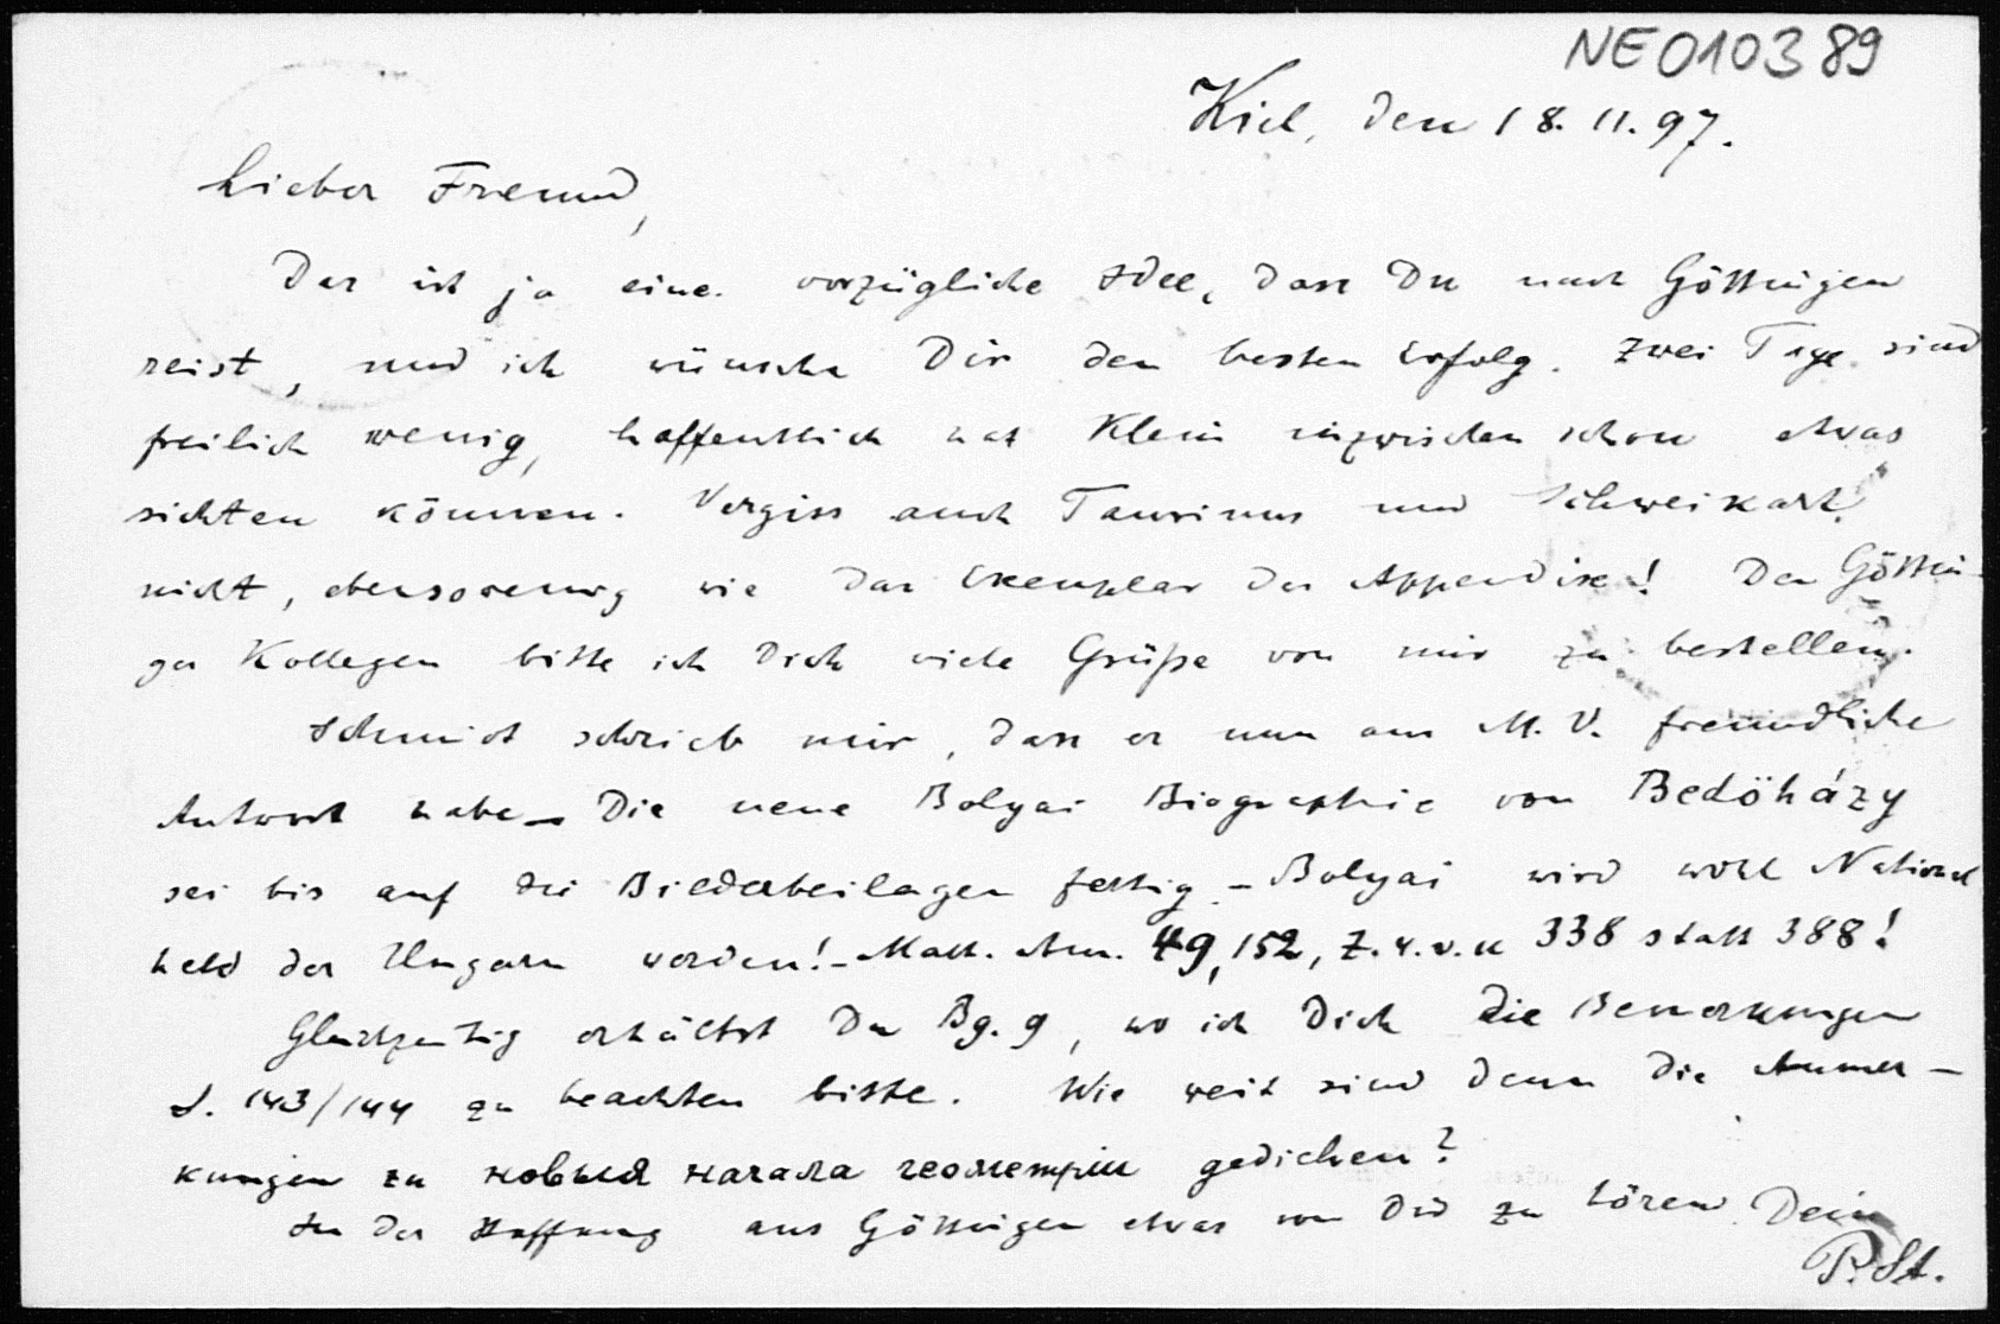 NE010389
Kiel, den 18. 11. 97.
Lieber Freund,
Das ist ja eine vorzügliche Idee, dass Du nach Göttingen
reist, und ich wünsche Dir den besten Erfolg. Zwei Tage sind
freilich wenig, hoffentlich hat Klein inzwischen schon etwas
sichten können. Vergiss auch Taurinus und Schweikart
nicht, ebensowenig wie das Exemplar des Appendix! Den Göttin-
ger Kollegen bitte ich Dich viele Grüße von mir zu bestellen.
Schmidt schrieb mir, dass er nun aus M. V. freundliche
Antwort habe. Die neue Bolyai Biographie von Bedöházy
sei bis auf die Bilderbeilagen fertig. – Bolyai wird wohl National
held der Ungarn werden! – Math. Ann. 49, 152, Z. 4. v. u 338 statt 388!
Gleichzeitig erhältst Du Bg. 9, wo ich Dich die Bemerkungen
S. 143/144 zu beachten bitte. Wie weit sind denn die Anmer-
kungen zu новыя начала геометріи gediehen?
In der Hoffnung aus Göttingen etwas von Dir zu hören Dein
P. St.